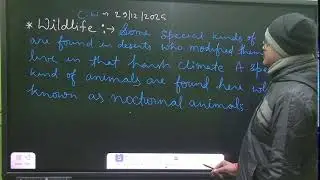 C.W → 29/12/2025
* Wildlife :→ Some special kinds of
are found in deserts who modified them
live in that harsh climate A spe
kind of animals are found here wh
known as nocturnal animals